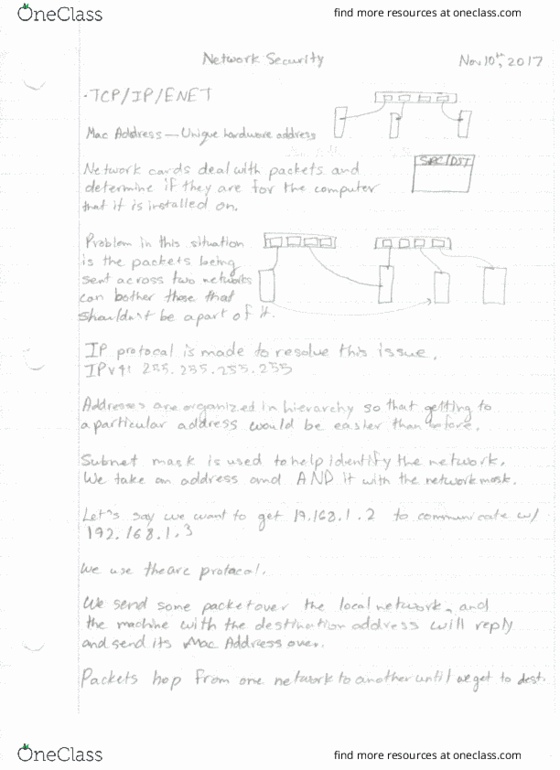 OneClass
find more resources at oneclass.com
Network Security
Nov 10th, 2017
·TCP/IP/ENET
Mac Address — Unique hardware address
SRC/DST
Network cards deal with packets and
determine if they are for the computer
that it is installed on.
Problem in this situation
is the packets being
sent across two networks
can bother those that
shouldn't be a part of it.
IP protocal is made to resolve this issue.
IPv4: 255.255.255.255
Addresses are organized in hierarchy so that getting to
a particular address would be easier than before.
Subnet mask is used to help identify the network.
We take an address and AND it with the network mask.
Let's say we want to get 19.168.1.2 to communicate w/
192.168.1.3
we use the arc protocal.
We send some packet over the local network, and
the machine with the destination address will reply
and send its Mac Address over.
Packets hop from one network to another until we get to dest.
OneClass
find more resources at oneclass.com